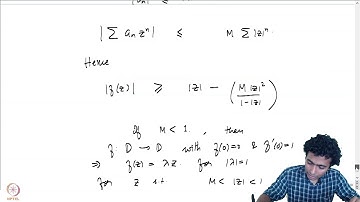 | Σ aₙ zⁿ | ≤ M Σ |z|ⁿ.
Hence
|f(z)| ≥ |z| - ( M |z|² / 1-|z| )
If M < 1, then
f: D → D with f(0)=0 & f'(0)=1
⇒ f(z) = λz for |λ|=1
for z st M < |z| < 1
NPTEL